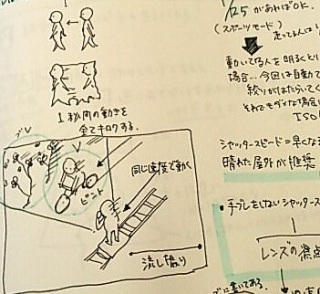 1/125 があればOK.
(スポーツモード)
動いてる人を明るくと
場合…今回は自動で
絞りがはたらいてく
それでもダメな場合
ISO
1秒間の動きを
全てキロクする.
シャッタースピード=早くな
晴れた屋外が推奨
ブレ
ピント
同じ速度で動く
流し撮り
・手ブレをしないシャッタース
レンズの焦点